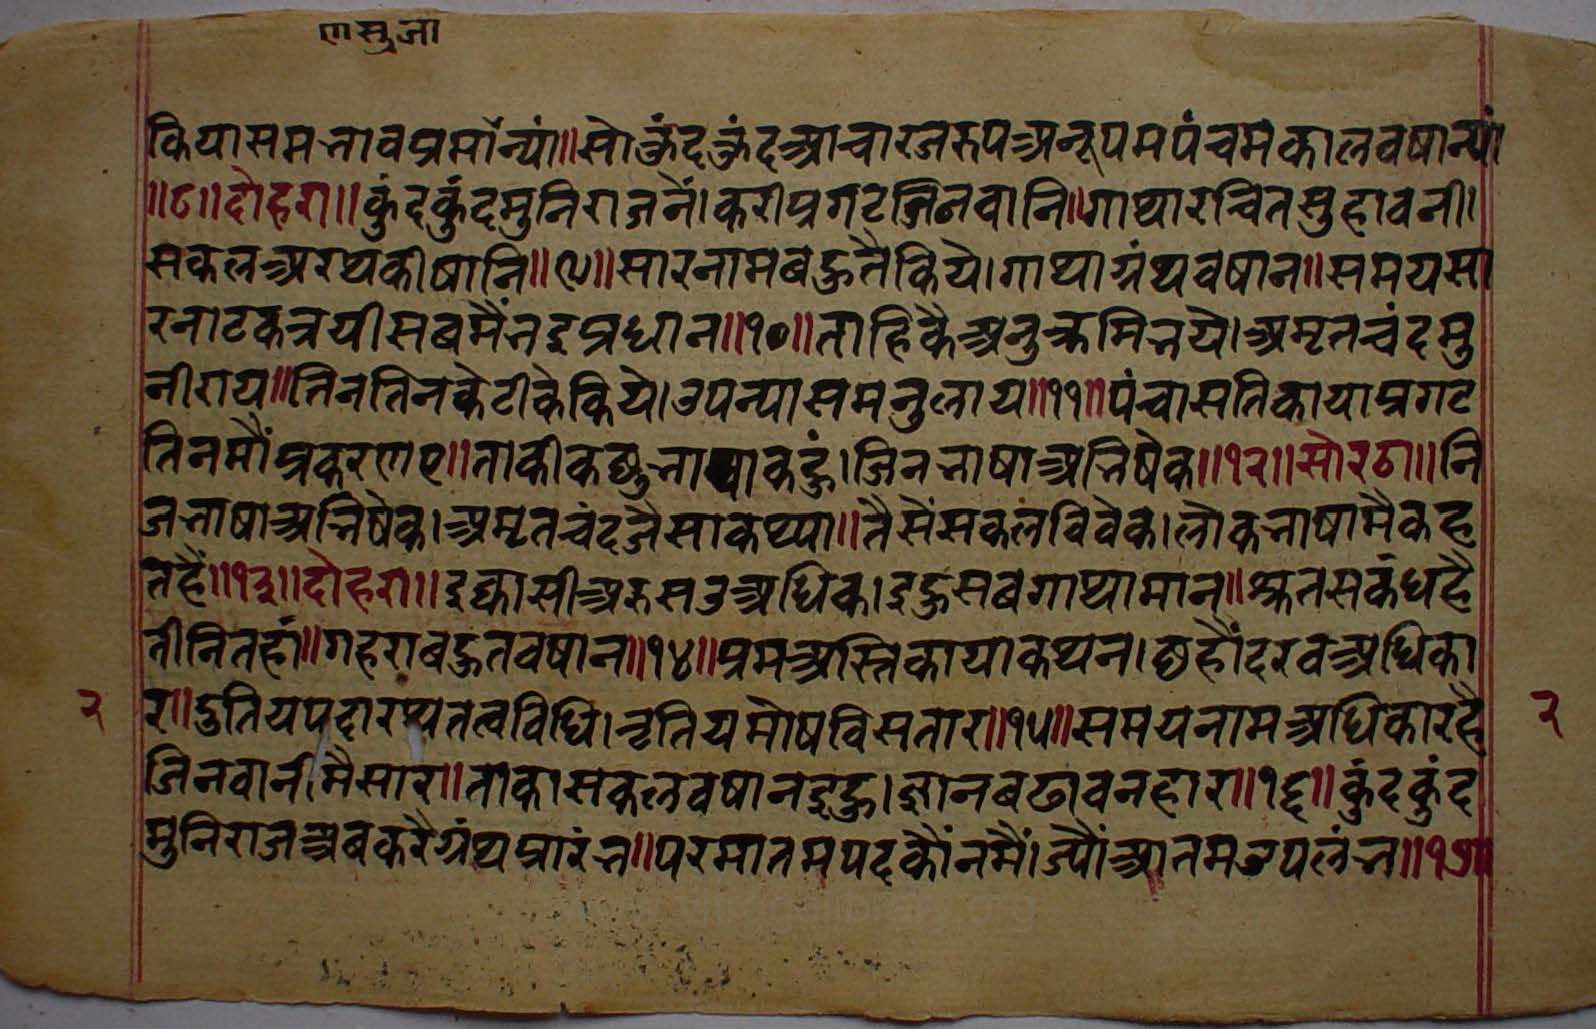 ण सु जा
कियासमभावप्रमांन्यां॥सोकुंदकुंदआचारजरूपअनूपमपंचमकालवषान्यां
॥८॥दोहरा॥कुंदकुंदमुनिराजनैं।करीप्रगटजिनवानि॥गाथारचितसुहावनी।
सकलअरथकीषानि॥९॥सारनामबहुतैकिये।गाथाग्रंथवषान॥समयसा
रनाटकत्रयीसबमैंभइप्रधान॥१०॥ताहिकैअनुक्रमिभये।अमृतचंदमु
नीराय॥तिनतिनकेटीकेकिये।उपन्यासमनुलाय॥११॥पंचासतिकायाप्रगट
तिनमौंप्रकरणए॥ताकीकछुभाषाकहुं।जिनभाषाअभिषेक॥१२॥सोरठा॥नि
जभाषाअभिषेक।अमृतचंदजैसाकथ्या॥तैसेंसकलविवेक।लोकभाषामैकह
तहैं॥१३॥दोहरा॥इक्यासीअरुसउअधिक।इहुसबगाथामान॥श्रुतसकंधहै
तीनितहां॥गहराबहुतवषान॥१४॥प्रमअस्तिकायाकथन।छहौंदरवअधिका
र॥दुतियपदारथ्यतत्वविधि।तृतियमोषविसतार॥१५॥समयनामअधिकारहै
जिनवानीमैसार॥ताकासकलवषानइहु।ज्ञानबढावनहार॥१६॥कुंदकुंद
मुनिराजअबकरैग्रंथप्रारंभ॥परमातमपदकौंनमैं।ज्यौंआतमउपलंभ॥१७॥
२
२